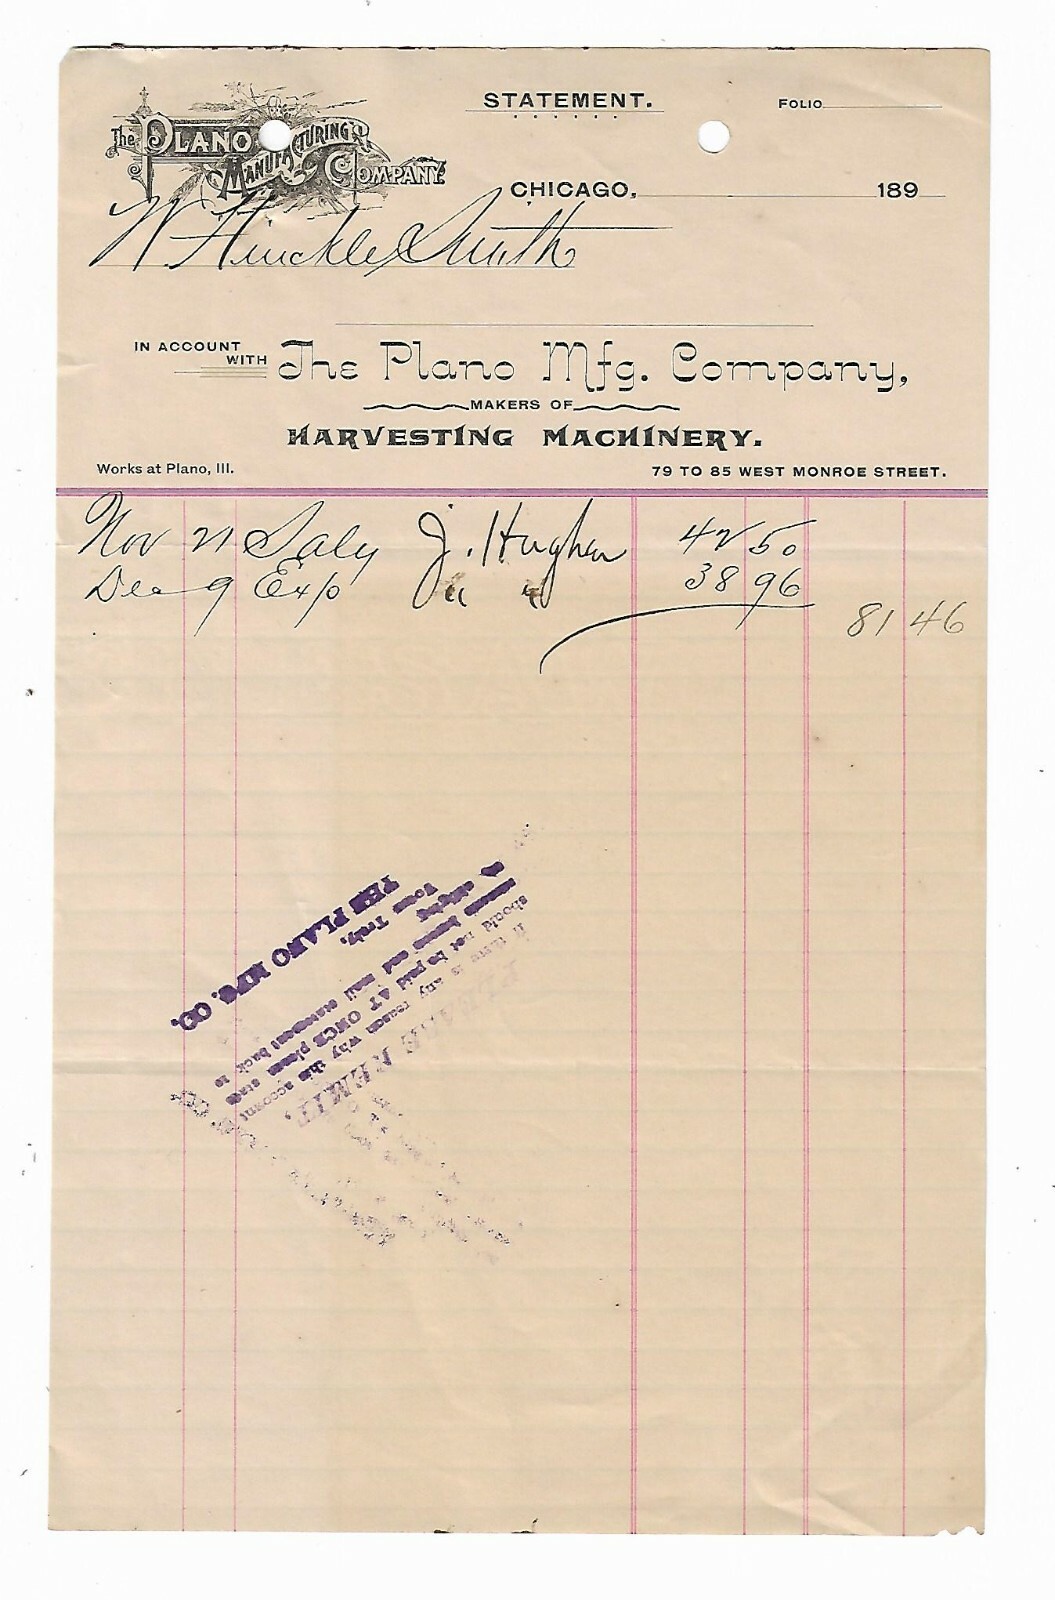 STATEMENT.
FOLIO
The PLANO
MANUFACTURING
COMPANY.
CHICAGO, 189
W Hinckle Smith
IN ACCOUNT
WITH
The Plano Mfg. Company,
MAKERS OF
HARVESTING MACHINERY.
Works at Plano, Ill.
79 TO 85 WEST MONROE STREET.
Nov 21 Saly J. Hughes 42 50
Dec 9 Exp " " 38 96
81 46
PLEASE REMIT,
If there is any reason why this account
should not be paid AT ONCE please state
and mail statement back to
Yours Truly,
THE PLANO MFG. CO.